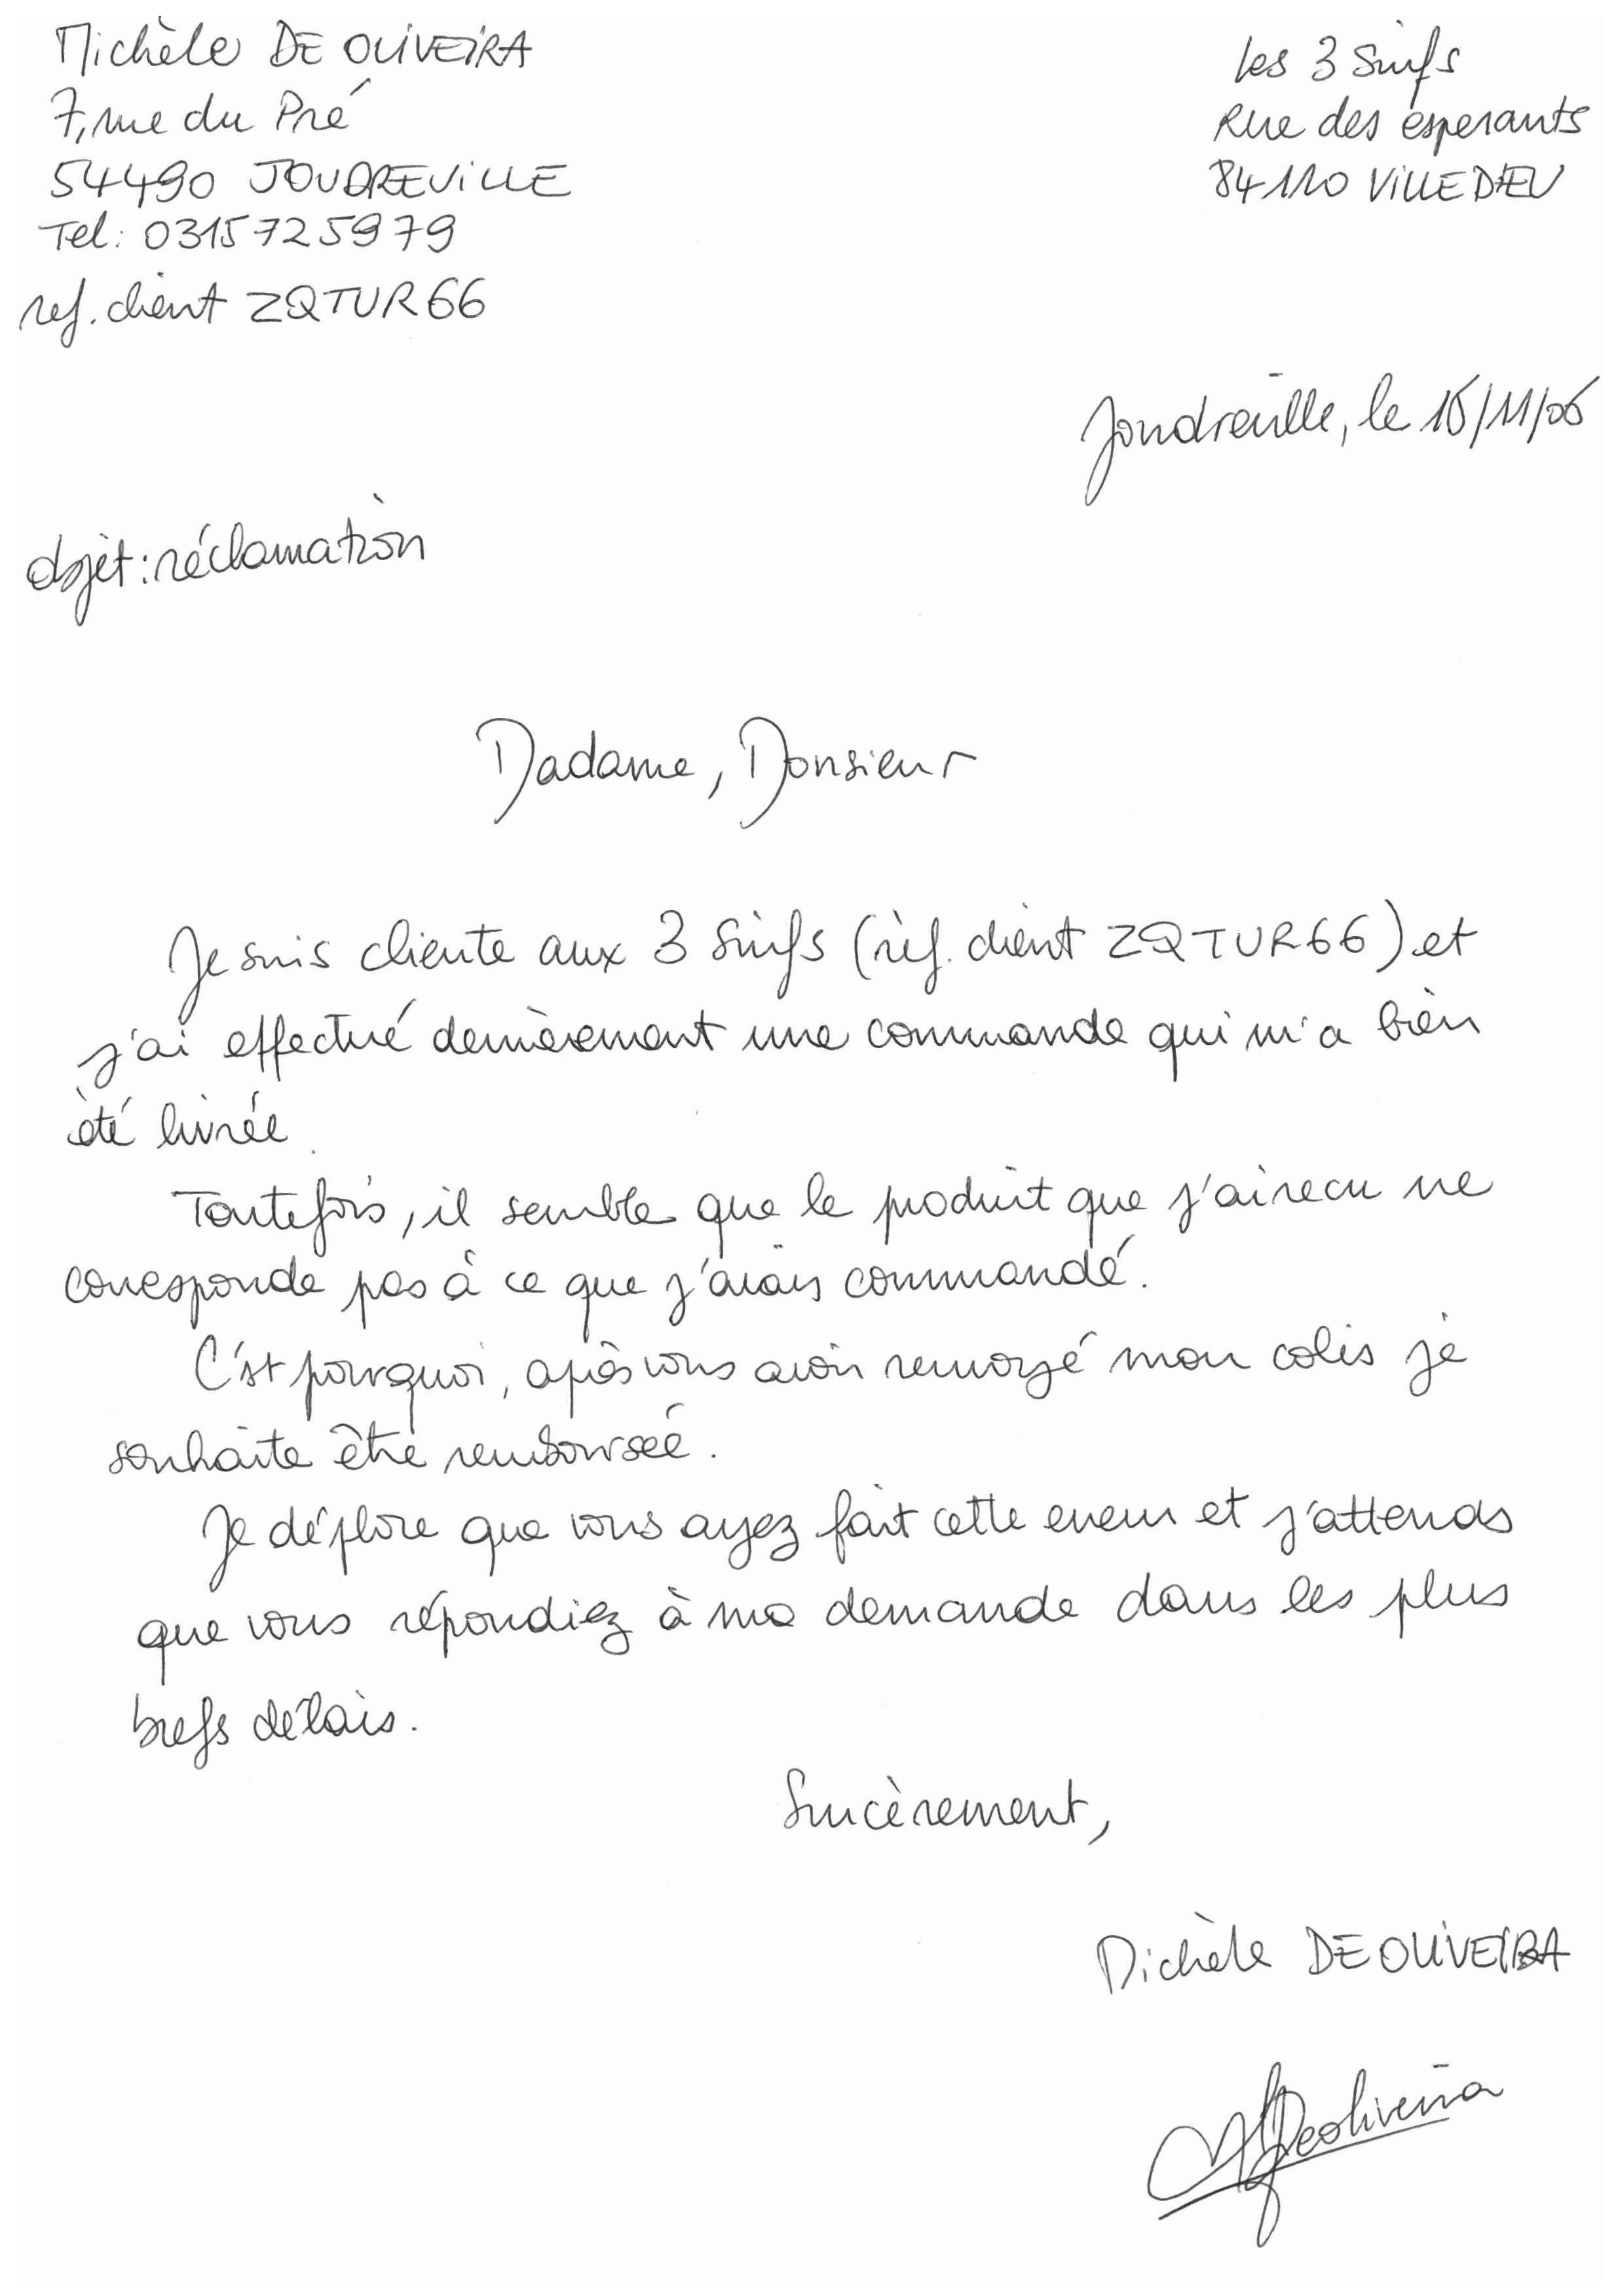 Michèle DE OLIVEIRA
7, rue du Pré
54490 JOUDREVILLE
Tel: 0315725979
ref. client ZQTUR66
Les 3 Suifs
Rue des esperants
84110 VILLEDIEU
Joudreville, le 16/11/06
objet: réclamation
Madame, Monsieur
Je suis cliente aux 3 Suifs (réf. client ZQTUR66) et
j'ai effectué dernièrement une commande qui m'a bien
été livrée.
Toutefois, il semble que le produit que j'ai recu ne
corresponde pas à ce que j'avais commandé.
C'est pourquoi, après vous avoir renvoyé mon colis je
souhaite être remboursée.
Je déplore que vous ayez fait cette erreur et j'attends
que vous répondiez à ma demande dans les plus
brefs délais.
Sincèrement,
Michèle DE OLIVEIRA
Deoliveira